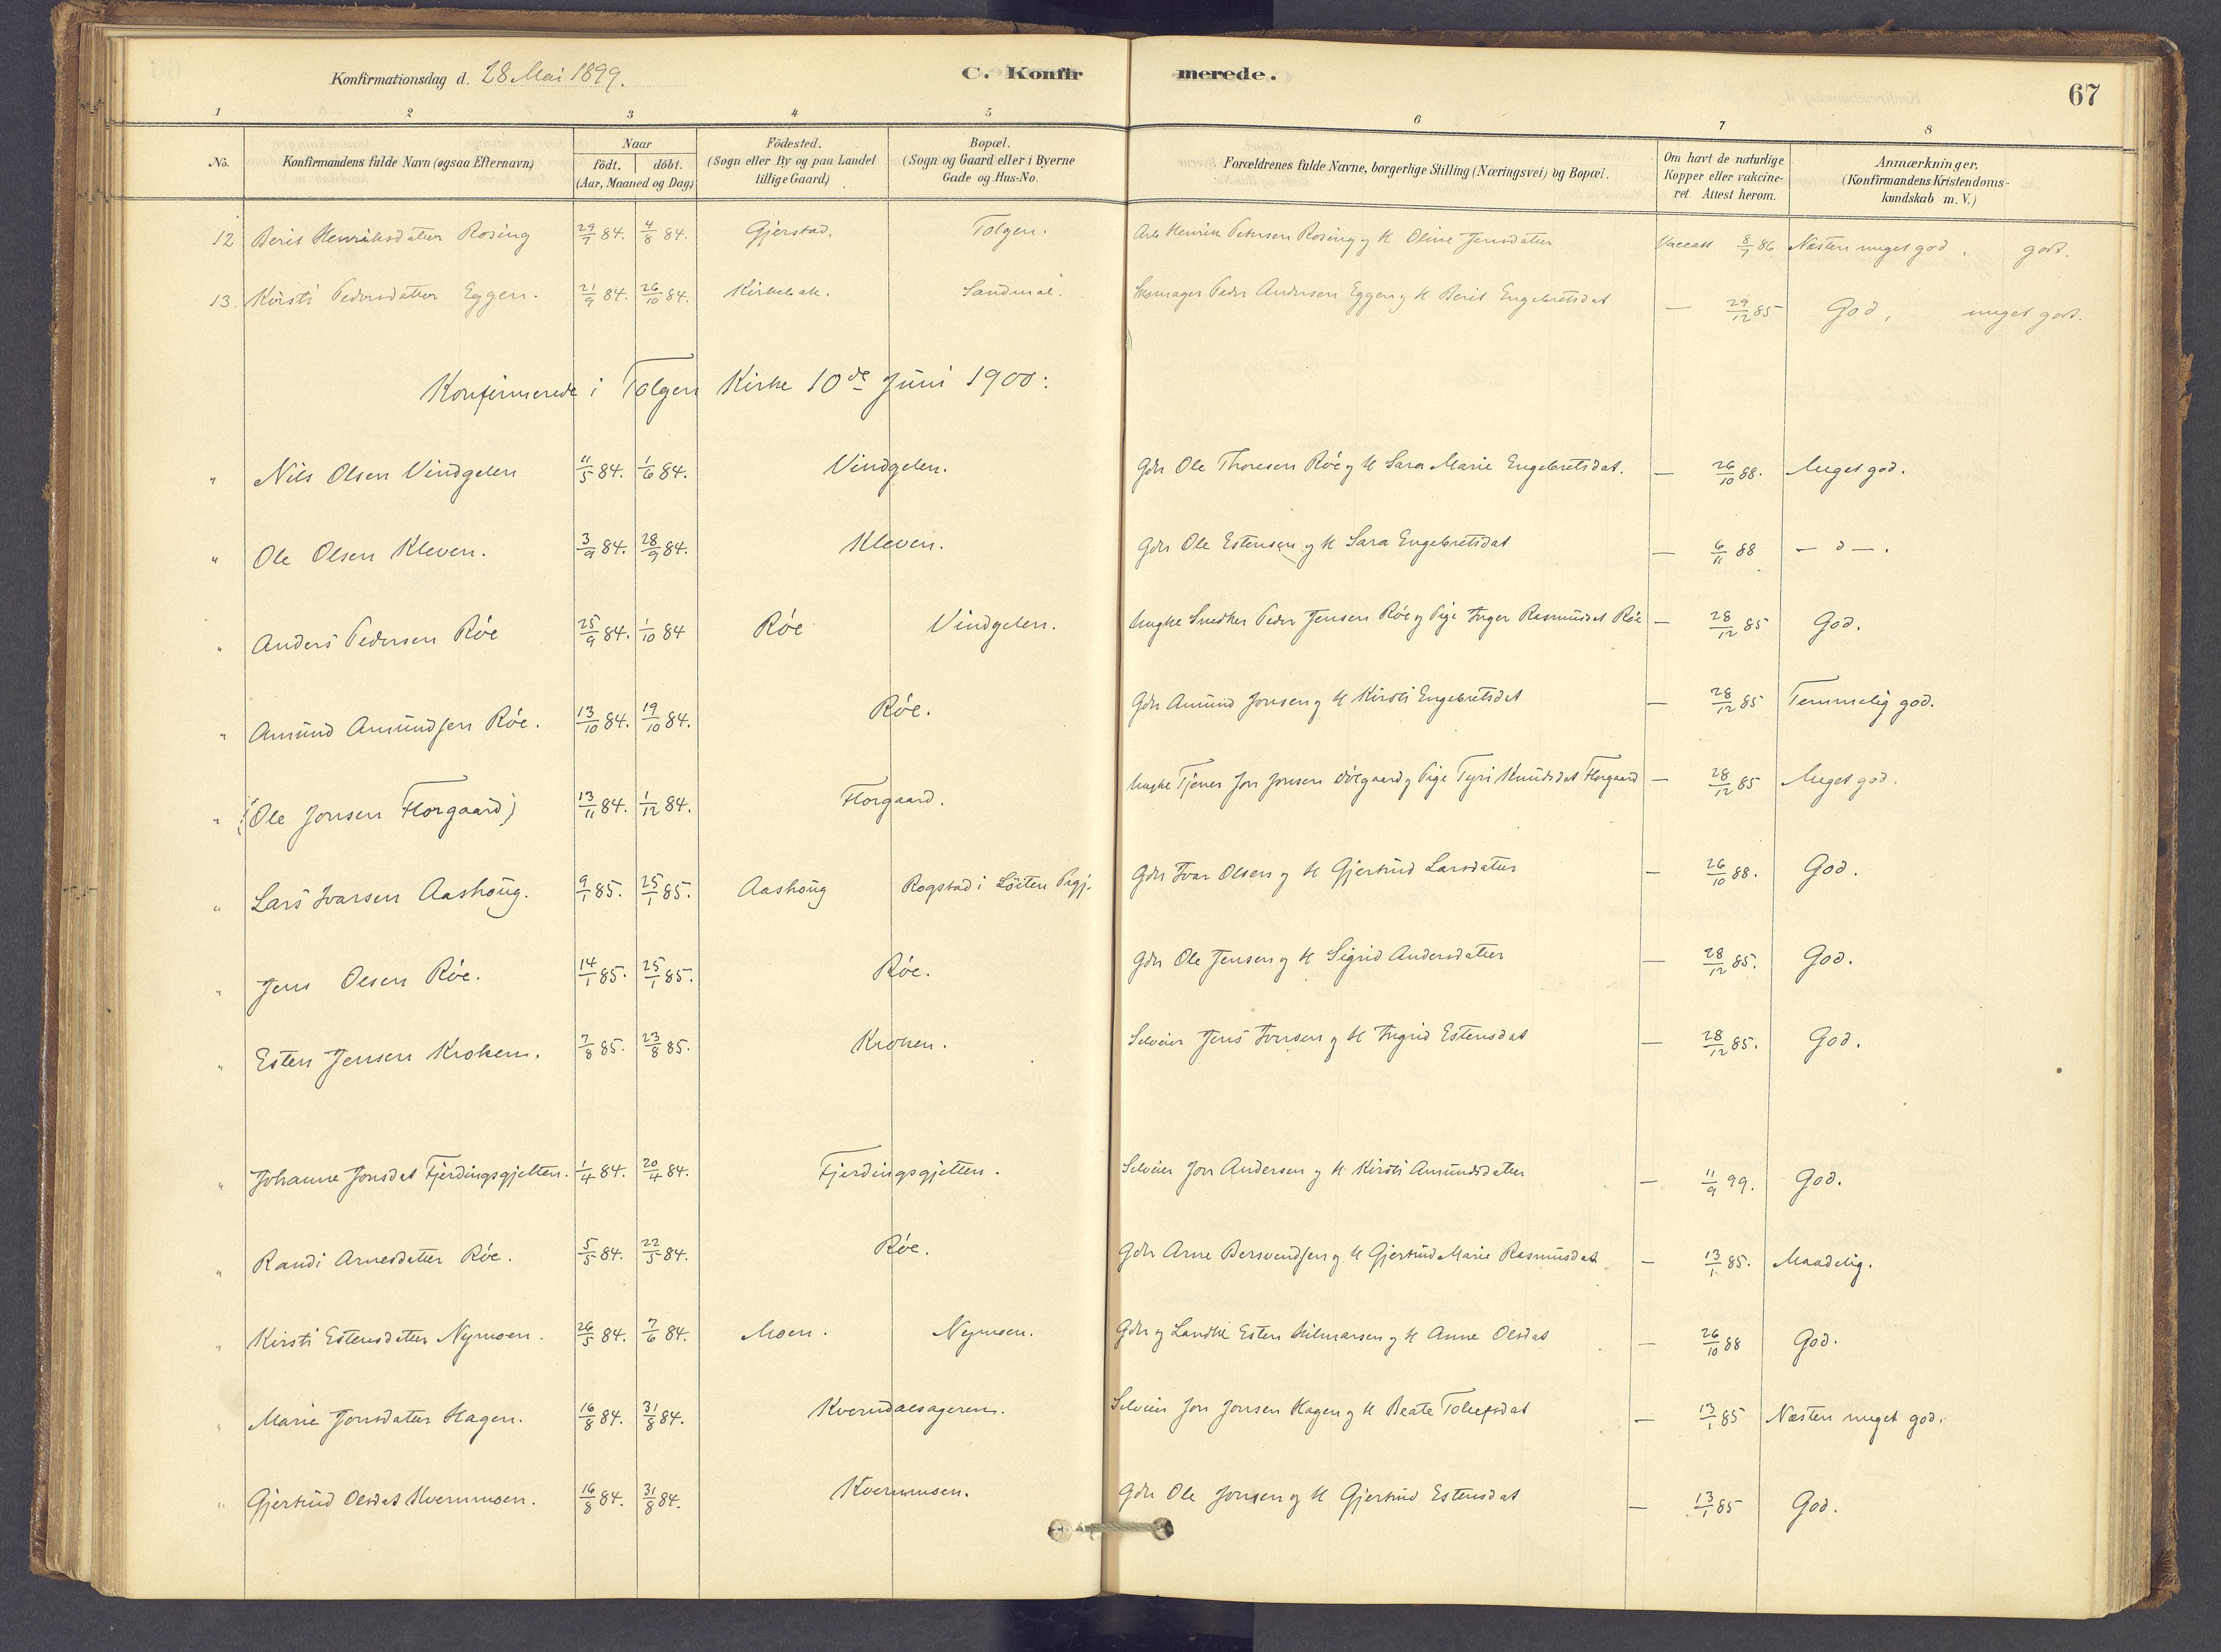 Konfirmationsdag d. 28 Mai 1899.
C. Konfirmerede.
67
1 2 3 4 5 6 7 8
No. Konfirmandens fulde Navn (ogsaa Efternavn) Naar födt. döbt. (Aar, Maaned og Dag) Födested. (Sogn eller By og paa Landet tillige Gaard) Bopæl. (Sogn og Gaard eller i Byerne Gade og Hus-No. Forældrenes fulde Navne, borgerlige Stilling (Næringsvei) og Bopæl. Om havt de naturlige Kopper eller vakcineret. Attest herom. Anmærkninger, (Konfirmandens Kristendomskundskab m. V.)
12 Berit Henriksdatter Rosing 29/7 84. 4/8 84. Gjerstad. Tolgen. Arb Henrik Petersen Rosing og H Oline Jensdatter 8/7 86 Næsten meget god. godt.
13. Kirsti Pedersdatter Eggen. 21/9 84. 26/10 84. Kirkebak. Sandmæl. Peder Andersen Eggen og H Berit Engebretsdat — 29/12 85 God, meget godt.
Konfirmerede i Tolgen Kirke 10de Juni 1900:
" Nils Olsen Vindgelen 11/5 84. 1/6 84. Vindgelen. Gdr Ole Thoresen Røe og H Sara Marie Engebretsdat. — 26/10 88. Meget god.
" Ole Olsen Kleven. 3/9 84. 28/9 84. Kleven. Gdr Ole Estensen og H Sara Engebretsdat — 6/11 88 — d —.
" Anders Pedersen Røe 25/9 84. 1/10 84 Røe Vindgelen. Ungke Snedker Peder Jensen Røe og Pige Inger Rasmusdat Røe — 28/12 85 God.
" Amund Amundsen Røe. 13/10 84. 19/10 84. Røe. Gdr Amund Jonsen og H Kirsti Engebretsdat — 28/12 85 Temmelig god.
" (Ole Jonsen Florgaard) 13/11 84. 1/12 84. Florgaard. Ungke Tjener Jon Jonsen og Pige Tyri Knudsdat Florgaard — 28/12 85 Meget god.
" Lars Ivarsen Aashoug. 9/1 85. 25/1 85. Aashoug Rogstad i Løiten Prgj. Gdr Ivar Olsen og H Gjertrud Larsdatter — 26/10 88. God.
" Jens Olsen Røe. 14/1 85. 25/1 85. Røe. Gdr Ole Jensen og H Sigrid Andersdatter — 28/12 85. God.
" Esten Jensen Kroken. 7/8 85. 23/8 85. Kroken. Selveier Jens Ivarsen og H Ingrid Estensdat — 28/12 85. God.
" Johanne Jonsdat Fjerdingsgjelten. 1/4 84. 20/4 84. Fjerdingsgjelten. Selveier Jon Andersen og H Kirsti Amundsdatter — 11/9 99. God.
" Randi Arnesdatter Røe. 5/5 84. 22/5 84. Røe. Gdr Arne Bersvendsen og H Gjertrud Marie Rasmusdat — 13/1 85. Maadelig.
" Kirsti Estensdatter Nymoen. 26/5 84. 7/6 84. Moen. Nymoen. Gdr og Landhl Esten Hilmarsen og H Anne Olsdat — 26/10 88 God.
" Marie Jonsdatter Hagen. 16/8 84. 31/8 84. Kverndalsageren. Selveier Jon Jonsen Hagen og H Beate Tollefsdat — 13/1 85 Næsten meget god.
" Gjertrud Olsdat Kvernmoen. 16/8 84. 31/8 84. Kvernmoen. Gdr Ole Jonsen og H Gjertrud Estensdat — 13/1 85 God.